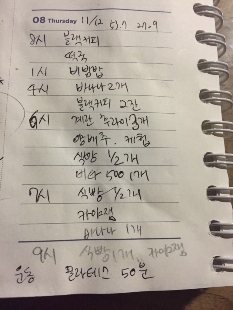 08 Thursday 11/12 53.7 27.9
8시 블랙커피
떡국
1시 비빔밥
4시 바나나 2개
블랙커피 2잔
6시 계란 후라이 3개
양배추. 케첩
식빵 1/2개
비타 500 1개
7시 식빵 1/2개
카야잼
바나나 1개
9시 식빵 1개, 카야잼
운동 필라테스 50분